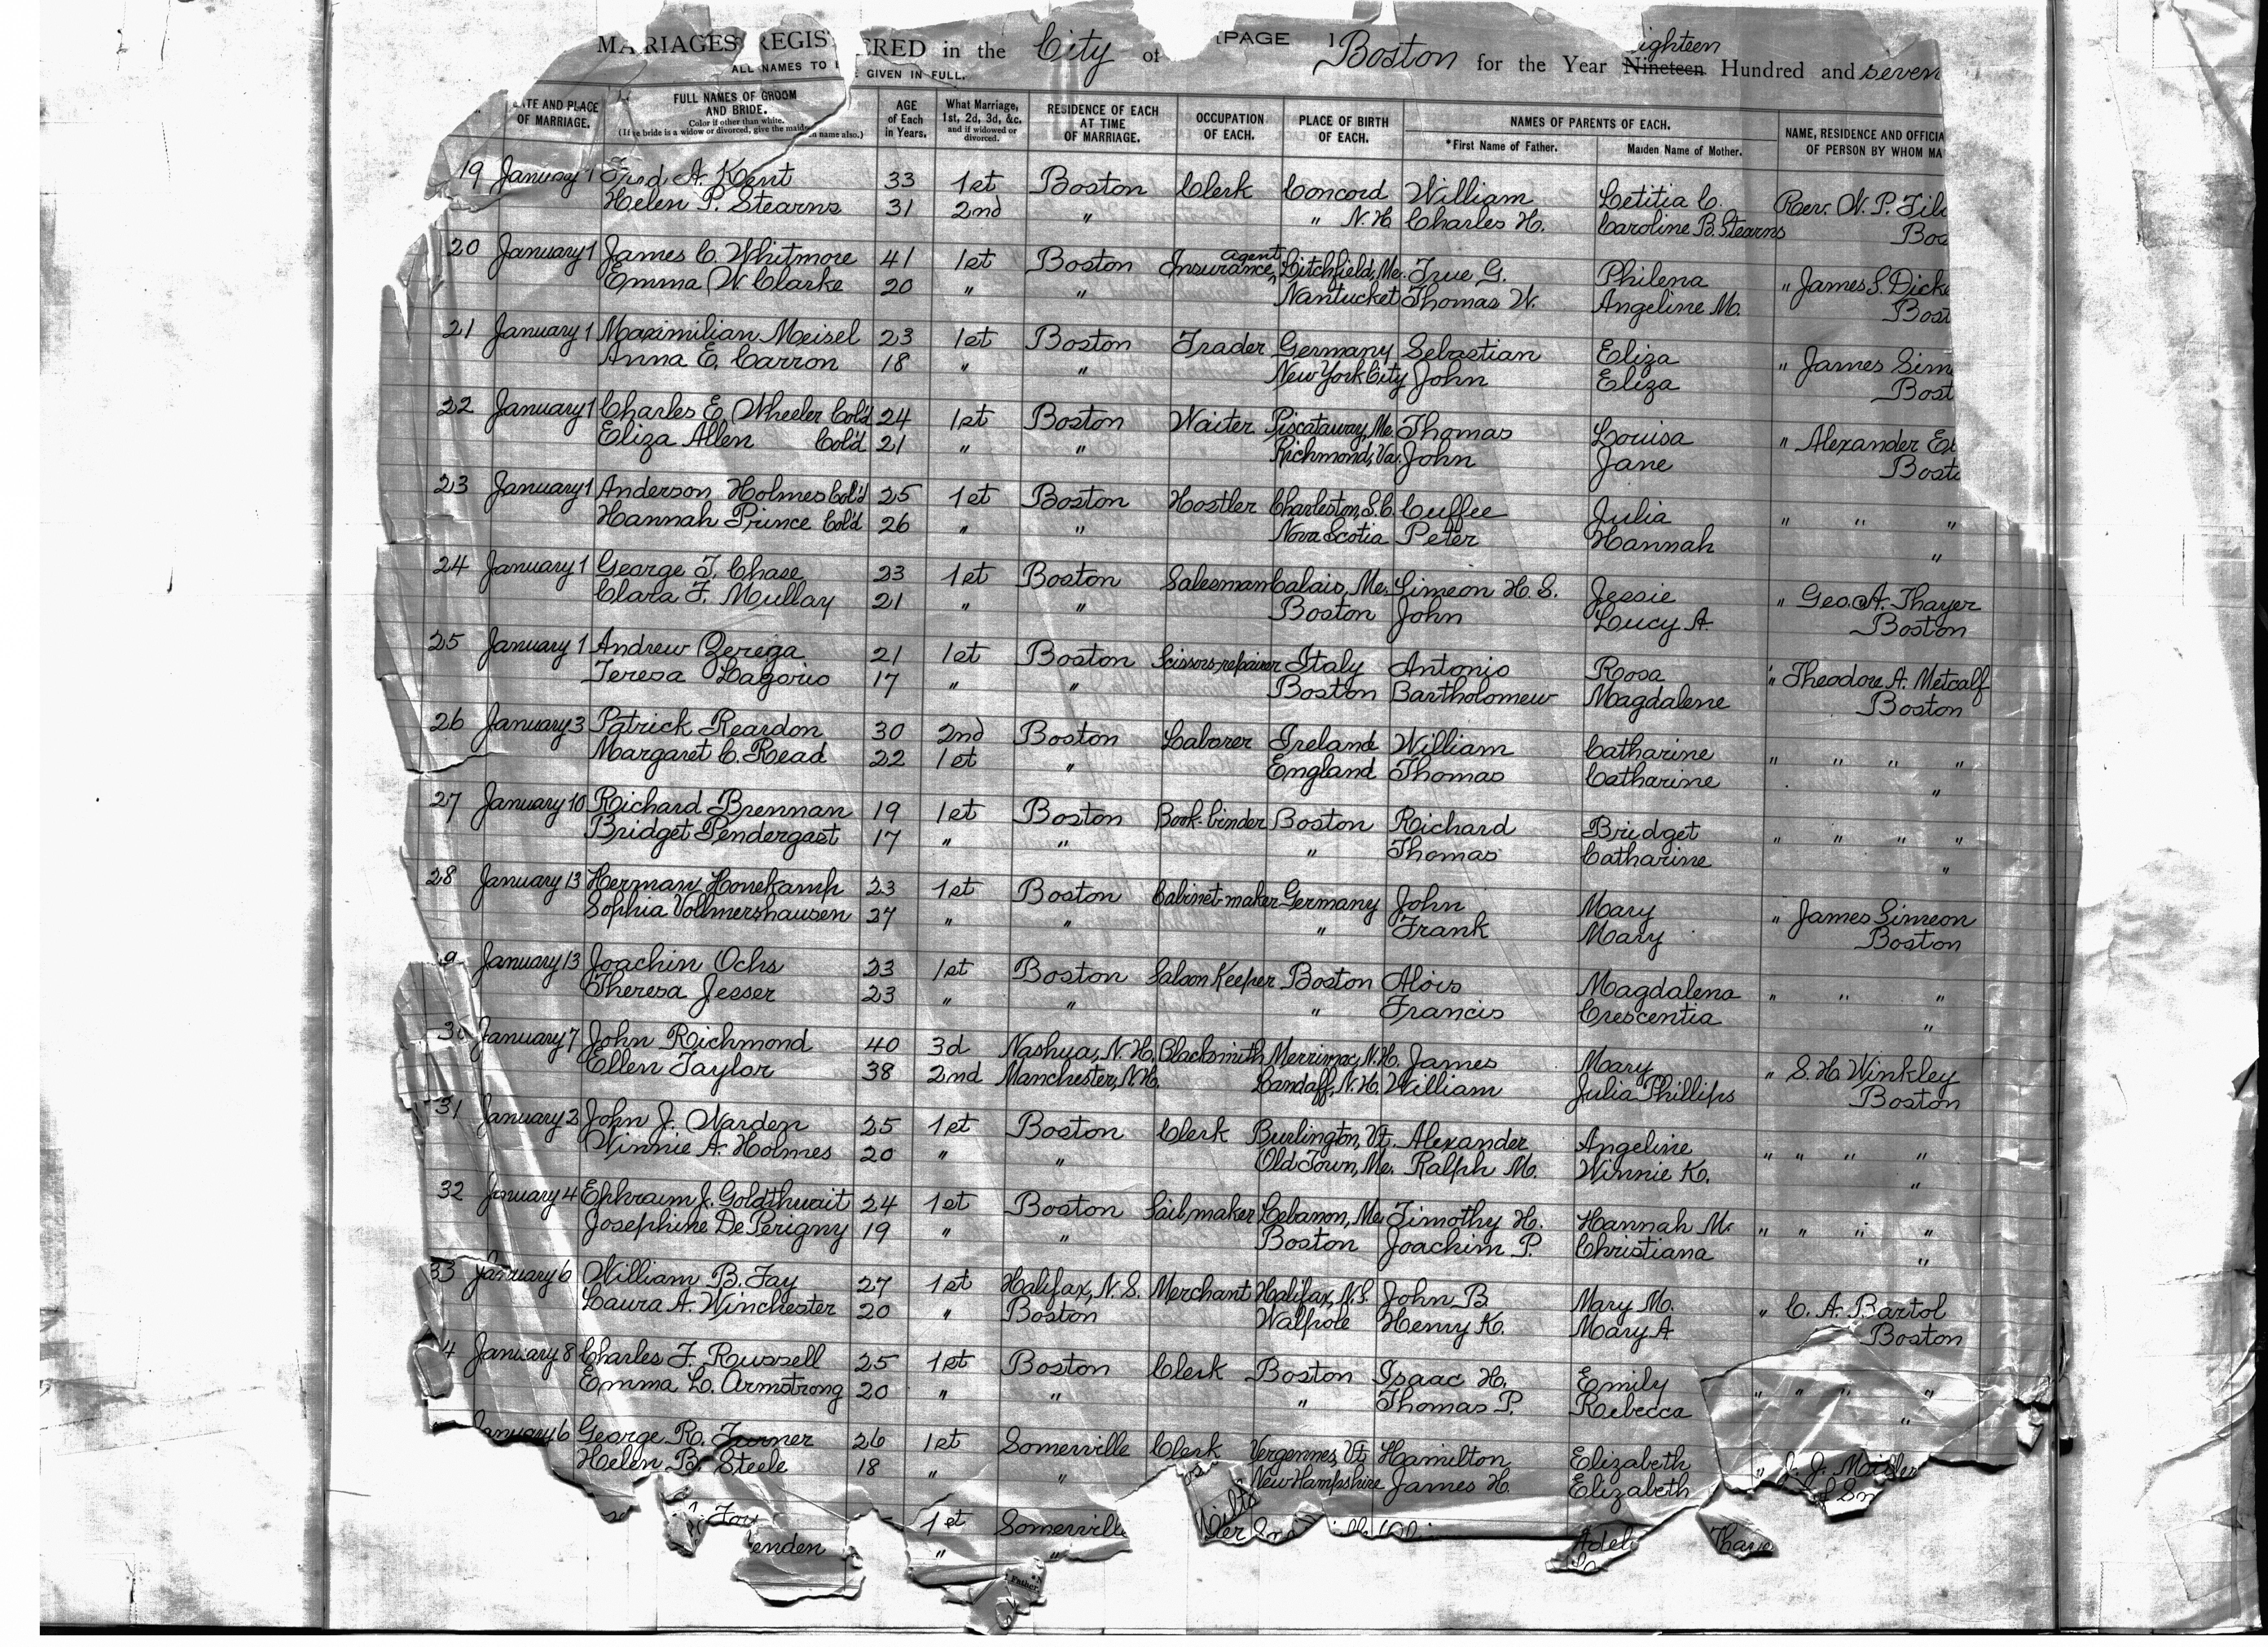 MARRIAGES REGIS ERED in the City of [PAGE 1 Boston for the Year Nineteen ighteen Hundred and seven
ALL NAMES TO GIVEN IN FULL.
ATE AND PLACE OF MARRIAGE. FULL NAMES OF GROOM AND BRIDE. Color if other than white. (If e bride is a widow or divorced, give the maiden name also.) AGE of Each in Years. What Marriage, 1st, 2d, 3d, &c. and if widowed or divorced. RESIDENCE OF EACH AT TIME OF MARRIAGE. OCCUPATION OF EACH. PLACE OF BIRTH OF EACH. NAMES OF PARENTS OF EACH. *First Name of Father. Maiden Name of Mother. NAME, RESIDENCE AND OFFICIA OF PERSON BY WHOM MA
19 January 1 Fred A. Kent 33 1st Boston Clerk Concord William Letitia C. Rev. N. P. Gil
Helen P. Stearns 31 2nd " " N.H. Charles H. Caroline B. Stearns Bos
20 January 1 James C. Whitmore 41 1st Boston Insurance agent Litchfield, Me. True G. Philena " James S. Dick
Emma W. Clarke 20 " " Nantucket Thomas W. Angeline M. Bost
21 January 1 Maximilian Meisel 23 1st Boston Trader Germany Sebastian Eliza " James Sim
Anna E. Carron 18 " " New York City John Eliza Bost
22 January 1 Charles E. Wheeler Col'd 24 1st Boston Waiter Piscataway, Me. Thomas Louisa " Alexander El
Eliza Allen Col'd 21 " " Richmond, Va. John Jane Bost
23 January 1 Anderson Holmes Col'd 25 1st Boston Hostler Charleston, S.C. Cuffee Julia " " "
Hannah Prince Col'd 26 " " Nova Scotia Peter Hannah "
24 January 1 George T. Chase 23 1st Boston Salesman Calais, Me. Simeon H. S. Jessie " Geo. A. Thayer
Clara F. Mullay 21 " " Boston John Lucy A. Boston
25 January 1 Andrew Zerega 21 1st Boston Scissors-repairer Italy Antonio Rosa " Theodore A. Metcalf
Teresa Lagorio 17 " " Boston Bartholomew Magdalene Boston
26 January 3 Patrick Reardon 30 2nd Boston Laborer Ireland William Catharine " " " "
Margaret C. Read 22 1st " England Thomas Catharine "
27 January 10 Richard Brennan 19 1st Boston Book-binder Boston Richard Bridget " " " "
Bridget Pendergast 17 " " " Thomas Catharine "
28 January 13 Herman Honekamp 23 1st Boston Cabinet-maker Germany John Mary " James Simeon
Sophia Vollmershausen 27 " " " Frank Mary Boston
9 January 13 Joachin Ochs 23 1st Boston Saloon Keeper Boston Alois Magdalena " " "
Theresa Jesser 23 " " " Francis Crescentia "
30 January 7 John Richmond 40 3d Nashua, N.H. Blacksmith Merrimac, N.H. James Mary " S. H. Winkley
Ellen Taylor 38 2nd Manchester, N.H. Landaff, N.H. William Julia Phillips Boston
31 January 2 John J. Warden 25 1st Boston Clerk Burlington, Vt. Alexander Angeline " " " "
Winnie A. Holmes 20 " " Old Town, Me. Ralph M. Winnie K. "
32 January 4 Ephraim J. Goldthwait 24 1st Boston Sailmaker Lebanon, Me. Timothy H. Hannah M. " " " "
Josephine De Perigny 19 " " Boston Joachim P. Christiana "
33 January 6 William B. Fay 27 1st Halifax, N.S. Merchant Halifax, N.S. John B. Mary M. " C. A. Bartol
Laura A. Winchester 20 " Boston Walpole Henry K. Mary A Boston
4 January 8 Charles F. Russell 25 1st Boston Clerk Boston Isaac H. Emily " " " "
Emma L. Armstrong 20 " " " Thomas P. Rebecca "
anuary 6 George R. Turner 26 1st Somerville Clerk Vergennes, Vt. Hamilton Elizabeth " J. J.
Helen B. Steele 18 " " New Hampshire James H. Elizabeth
1st Somerville Adel Thay
enden " "
Father.